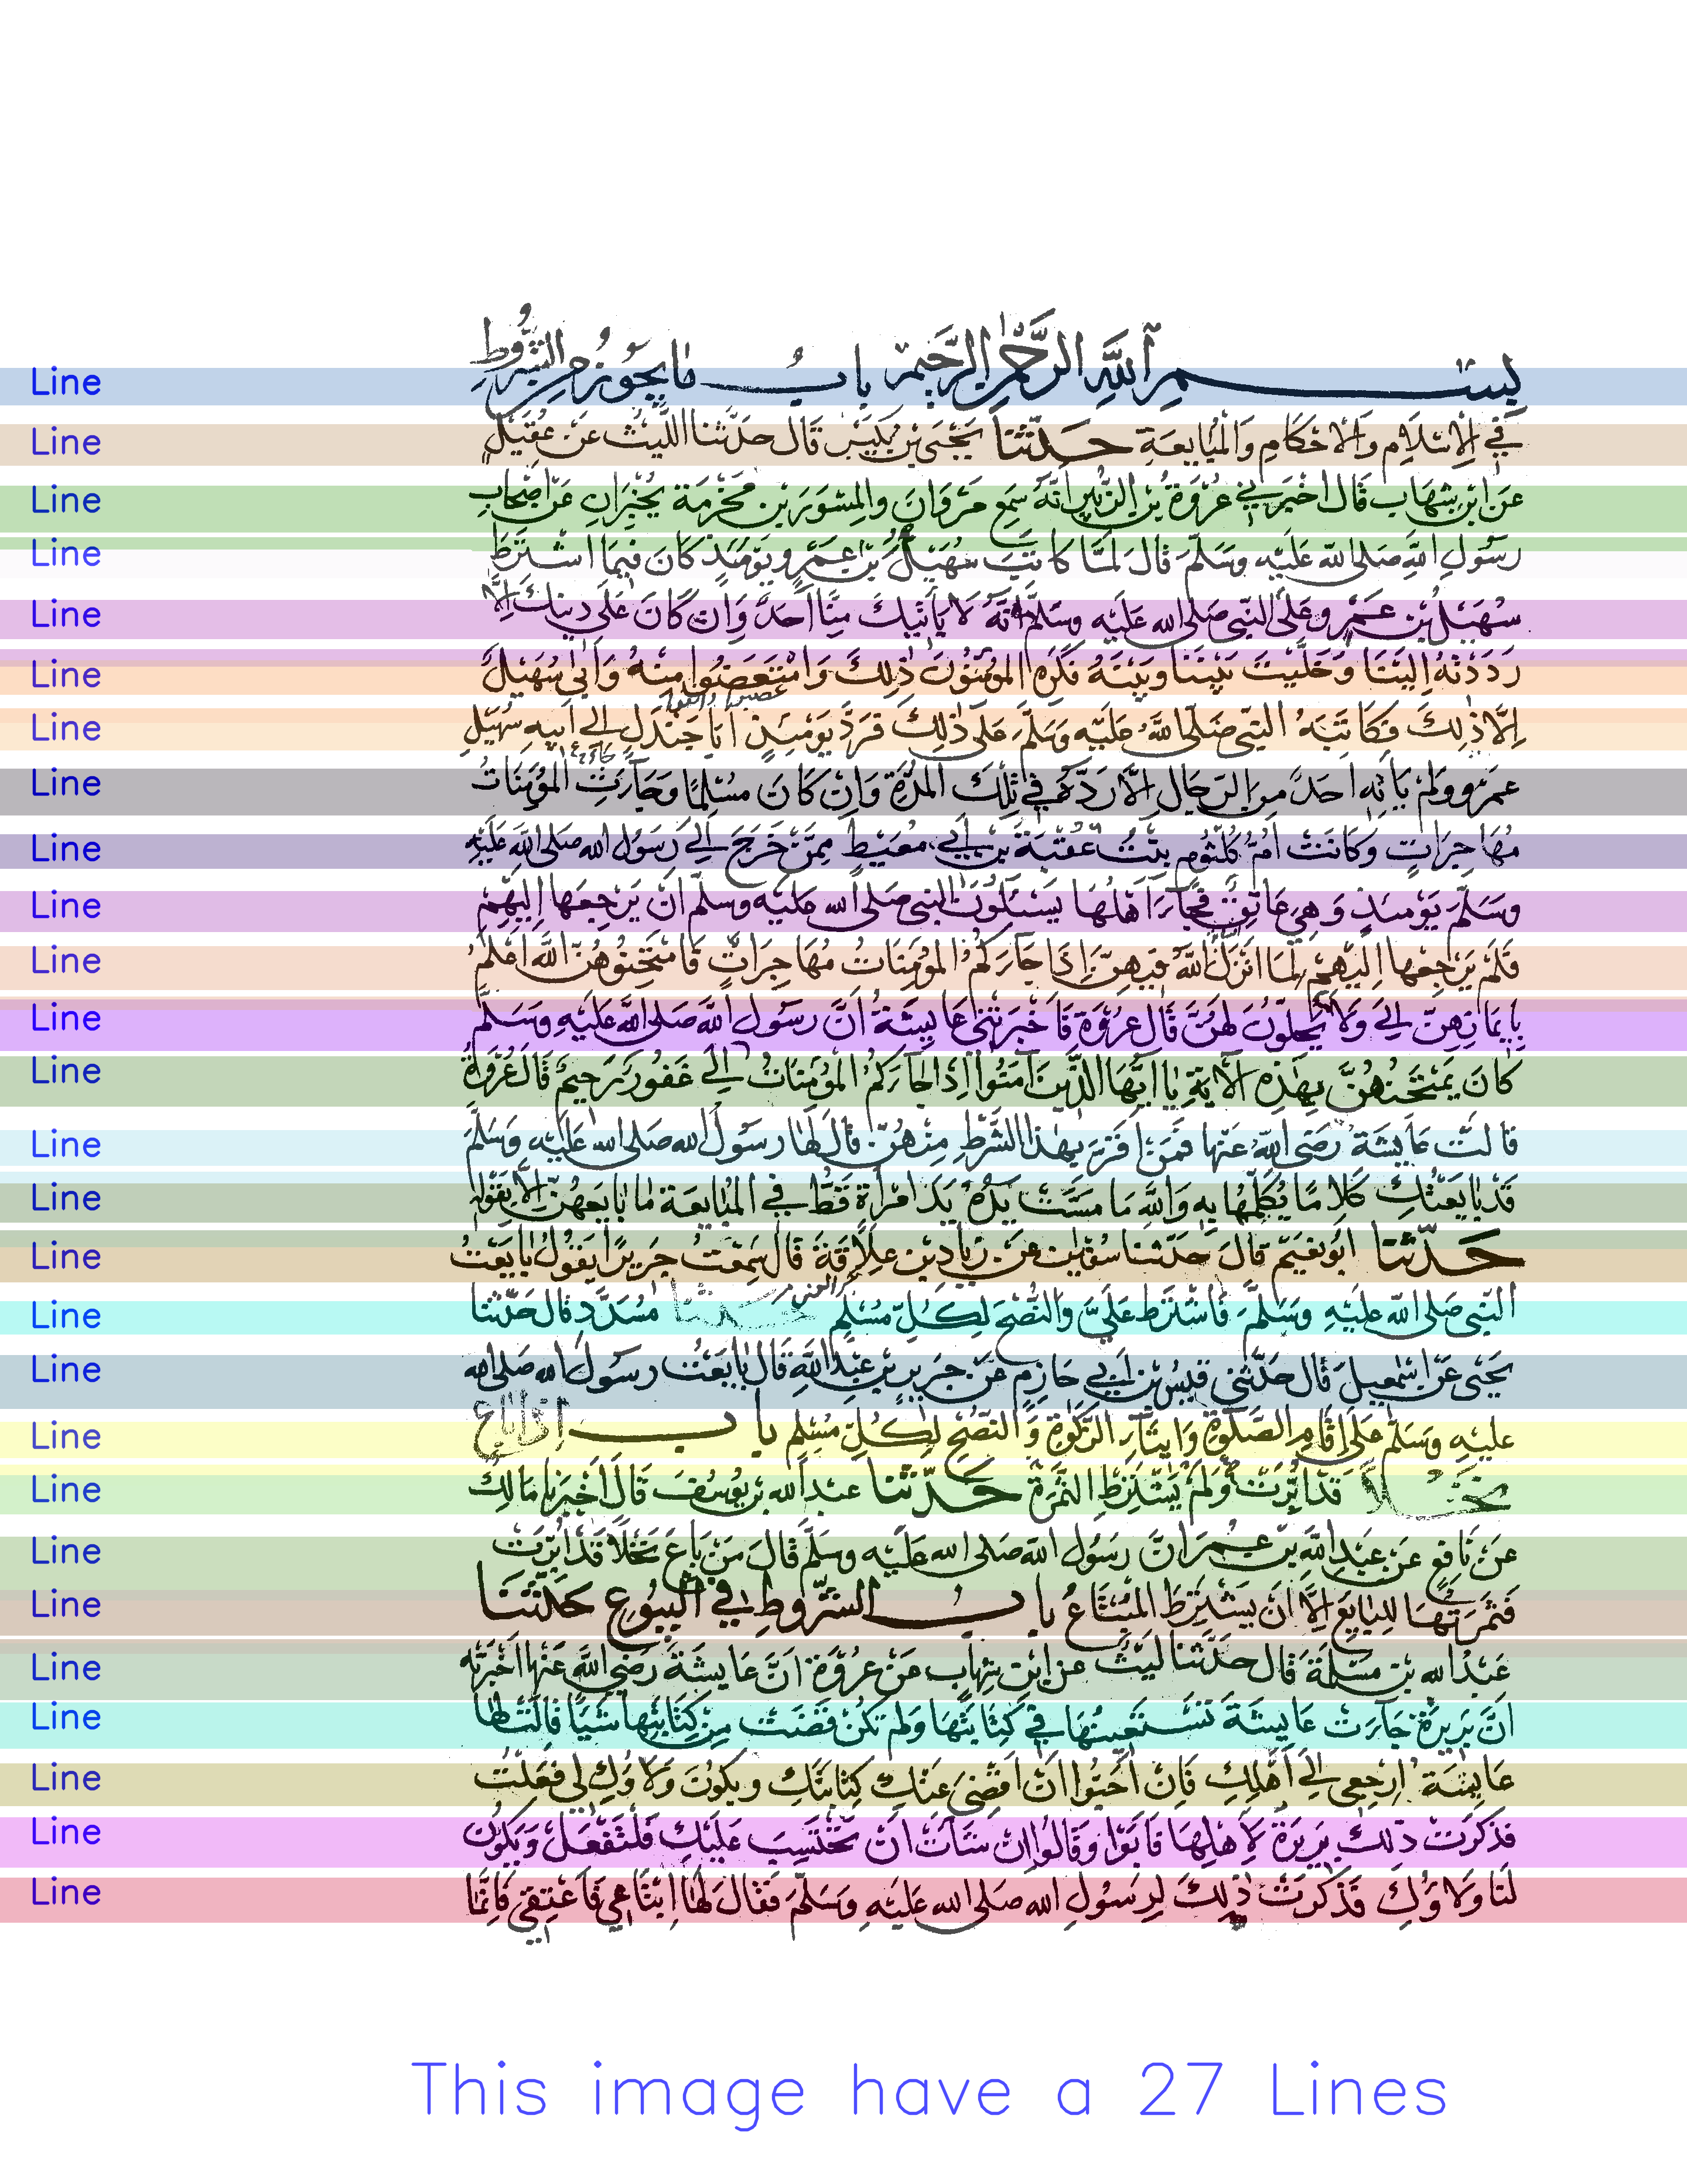 بسم الله الرحمن الرحيم باب ما يجوز من الشروط
Line
في الاسلام والاحكام والمبايعة حدثنا يحيى بن بكير قال حدثنا الليث عن عقيل
Line
عن ابن شهاب قال اخبرني عروة بن الزبير انه سمع مروان والمسور بن مخرمة يخبران عن اصحاب
Line
رسول الله صلى الله عليه وسلم قال لما كاتب سهيل بن عمرو يومئذ كان فيما اشترط
Line
سهيل بن عمرو على النبي صلى الله عليه وسلم انه لا يأتيك منا احد وان كان على دينك الا
Line
رددته الينا وخليت بيننا وبينه فكره المؤمنون ذلك وامتعضوا منه وابى سهيل
Line
الا ذلك فكاتبه النبي صلى الله عليه وسلم على ذلك فرد يومئذ ابا جندل الى ابيه سهيل
Line
عمرو ولم يأته احد من الرجال الا رده في تلك المدة وان كان مسلما وجاءت المؤمنات
Line
مهاجرات وكانت ام كلثوم بنت عقبة بن ابي معيط ممن خرج الى رسول الله صلى الله عليه
Line
وسلم يومئذ وهي عاتق فجاء اهلها يسئلون النبي صلى الله عليه وسلم ان يرجعها اليهم
Line
فلم يرجعها اليهم لما انزل الله فيهن اذا جاءكم المؤمنات مهاجرات فامتحنوهن الله اعلم
Line
بايمانهن الى ولا يحلون لهن قال عروة فاخبرتني عايشة ان رسول الله صلى الله عليه وسلم
Line
كان يمتحنهن بهذه الآية يا ايها الذين آمنوا اذا جاءكم المؤمنات الى غفور رحيم قال عروة
Line
قالت عايشة رضي الله عنها فمن اقر بهذا الشرط منهن قال لها رسول الله صلى الله عليه وسلم
Line
قد بايعتك كلاما يكلمها به والله ما مست يده يد امرأة قط في المبايعة ما بايعهن الا بقوله
Line
حدثنا ابو نعيم قال حدثنا سفيان عن زياد بن علاقة قال سمعت جريرا يقول بايعت
Line
النبي صلى الله عليه وسلم فاشترط علي والنصح لكل مسلم حدثنا مسدد قال حدثنا
Line
يحيى عن اسمعيل قال حدثني قيس بن ابي حازم عن جرير بن عبد الله قال بايعت رسول الله صلى الله
Line
عليه وسلم على اقام الصلوة وايتاء الزكوة والنصح لكل مسلم باب اذا باع
Line
نخلا قد ابرت ولم يشترط الثمرة حدثنا عبد الله بن يوسف قال اخبرنا مالك
Line
عن نافع عن عبد الله بن عمر ان رسول الله صلى الله عليه وسلم قال من باع نخلا قد ابرت
Line
فثمرتها للبايع الا ان يشترط المبتاع باب الشروط في البيوع حدثنا
Line
عبد الله بن مسلمة قال حدثنا ليث عن ابن شهاب عن عروة ان عايشة رضي الله عنها اخبرته
Line
ان بريرة جاءت عايشة تستعينها في كتابتها ولم تكن قضت من كتابتها شيئا قالت لها
Line
عايشة ارجعي الى اهلك فان احبوا ان اقضي عنك كتابتك ويكون ولاؤك لي فعلت
Line
فذكرت ذلك بريرة لاهلها فابوا وقالوا ان شاءت ان تحتسب عليك فلتفعل ويكون
Line
لنا ولاؤك فذكرت ذلك لرسول الله صلى الله عليه وسلم فقال لها ابتاعي فاعتقي فانما
Line
This image have a 27 Lines